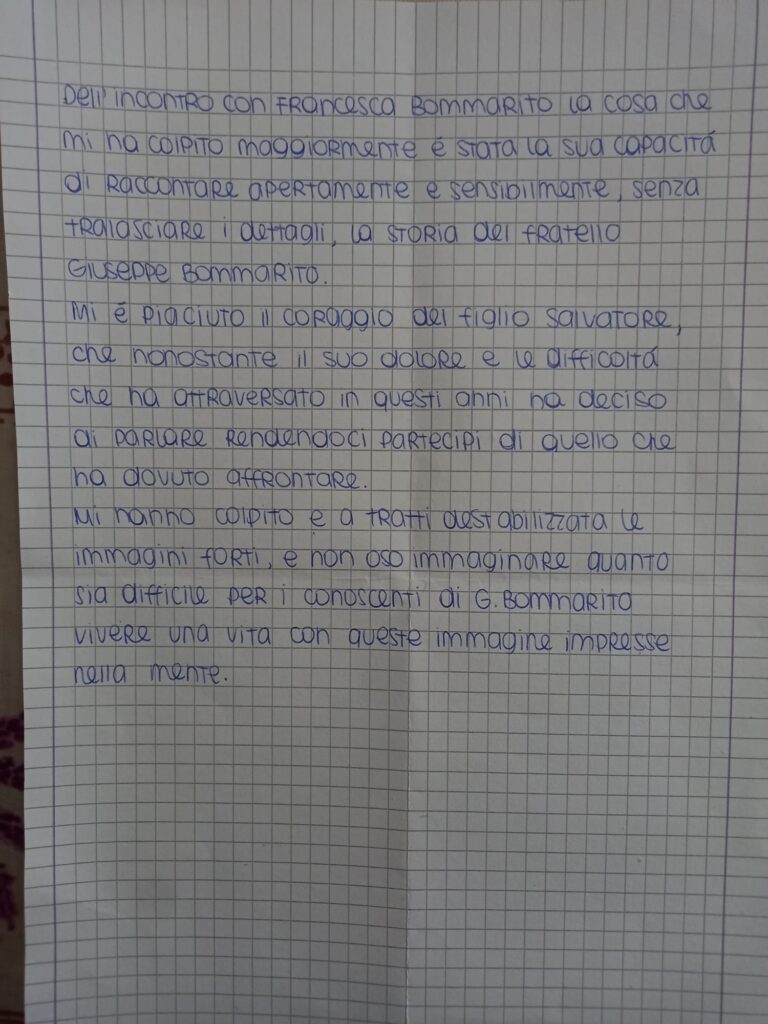 Dell'incontro con Francesca Bommarito la cosa che
mi ha colpito maggiormente é stata la sua capacitá
di raccontare apertamente e sensibilmente, senza
tralasciare i dettagli, la storia del fratello
Giuseppe Bommarito.
Mi é piaciuto il coraggio del figlio Salvatore,
che nonostante il suo dolore e le difficoltá
che ha attraversato in questi anni ha deciso
di parlare rendendoci partecipi di quello che
ha dovuto affrontare.
Mi hanno colpito e a tratti destabilizzata le
immagini forti, e non oso immaginare quanto
sia difficile per i conoscenti di G. Bommarito
vivere una vita con queste immagine impresse
nella mente.